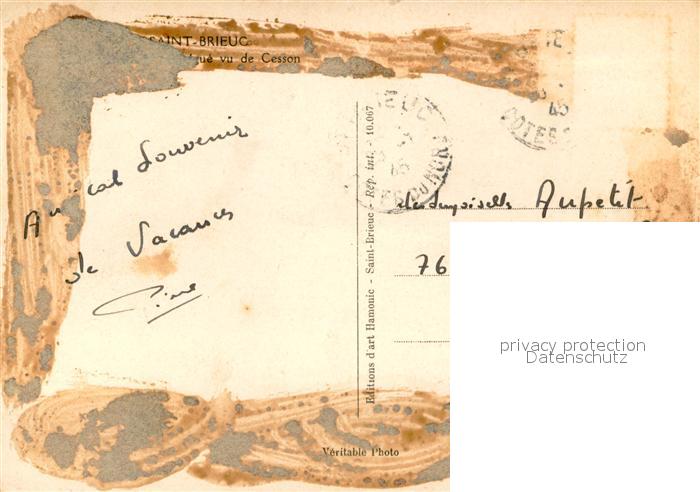 SAINT-BRIEUC
vu de Cesson
Amical Souvenir
de Vacances
Editions d'art Hamonic - Saint-Brieuc - Rép. int. - 10.067
BRIEUC
COTES DU NORD
COTES
Mademoiselle Aupetit
76
privacy protection
Datenschutz
Véritable Photo